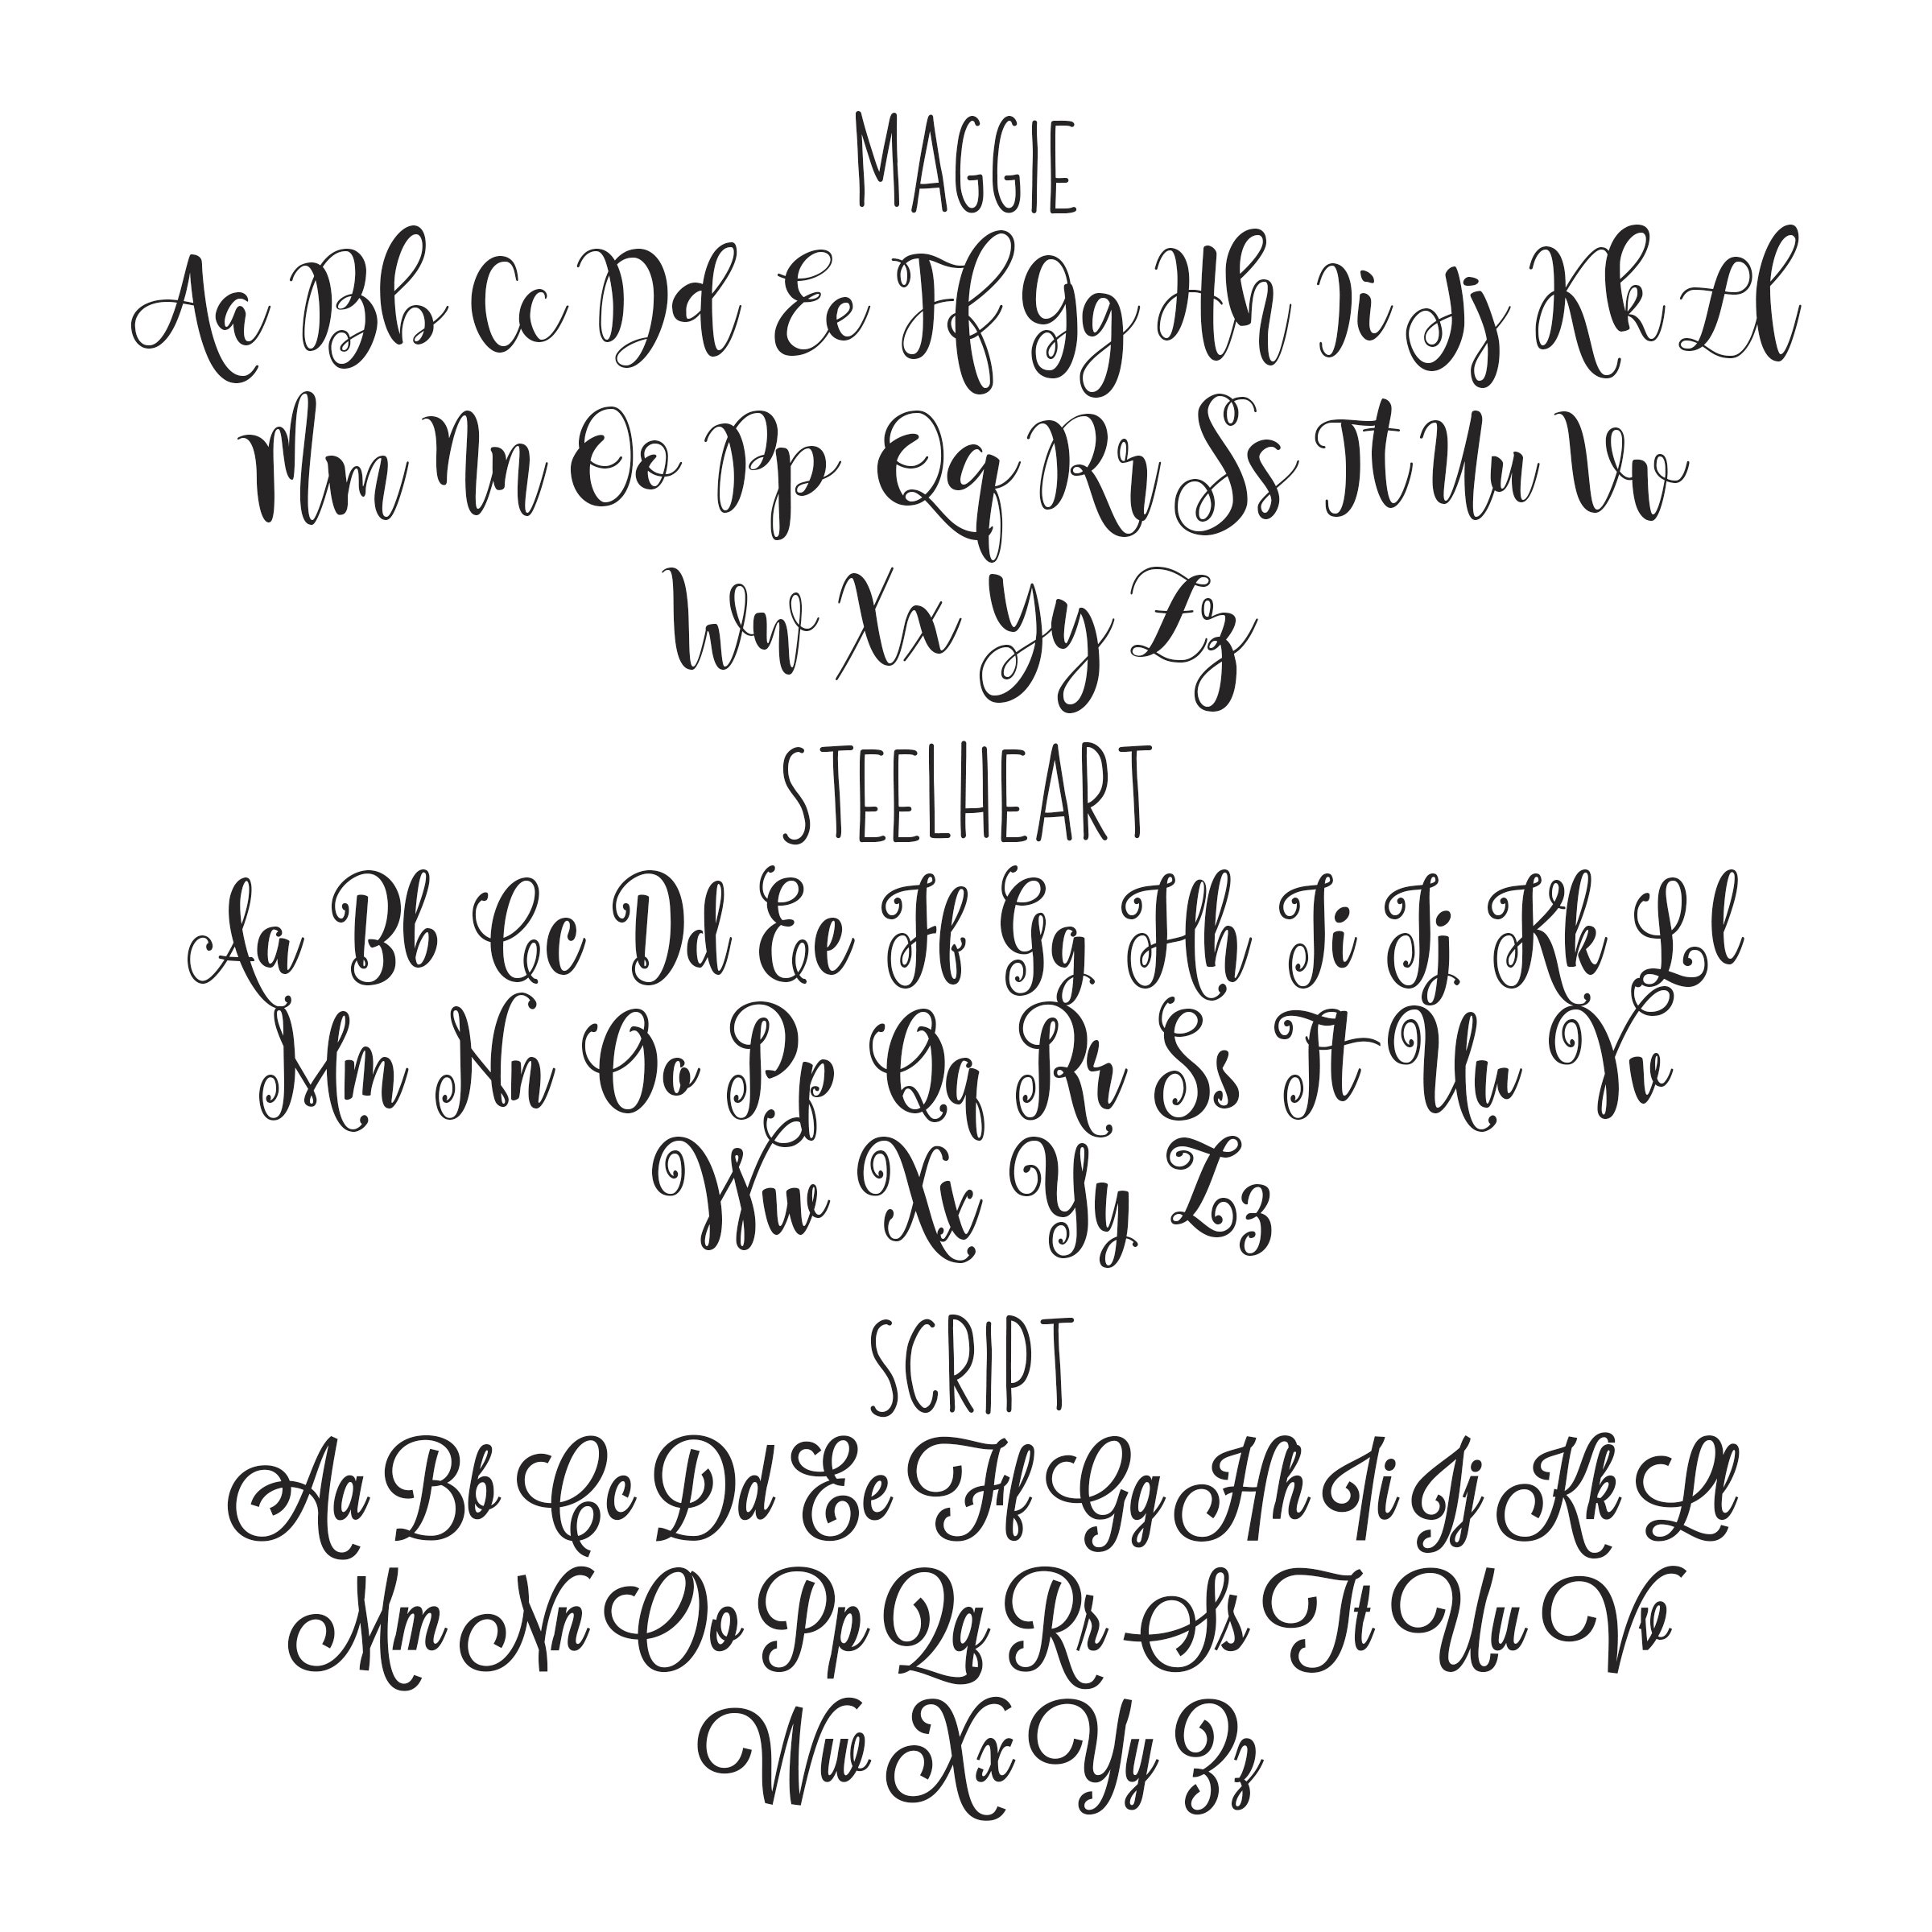 MAGGIE
Aa Bb Cc Dd Ee Ff Gg Hh Ii Jj Kk Ll
Mm Nn Oo Pp Qq Rr Ss Tt Uu Vv
Ww Xx Yy Zz
STEELHEART
Aa Bb Cc Dd Ee Ff Gg Hh Ii Jj Kk Ll
Mm Nn Oo Pp Qq Rr Ss Tt Uu Vv
Ww Xx Yy Zz
SCRIPT
Aa Bb Cc Dd Ee Ff Gg Hh Ii Jj Kk Ll
Mm Nn Oo Pp Qq Rr Ss Tt Uu Vv
Ww Xx Yy Zz